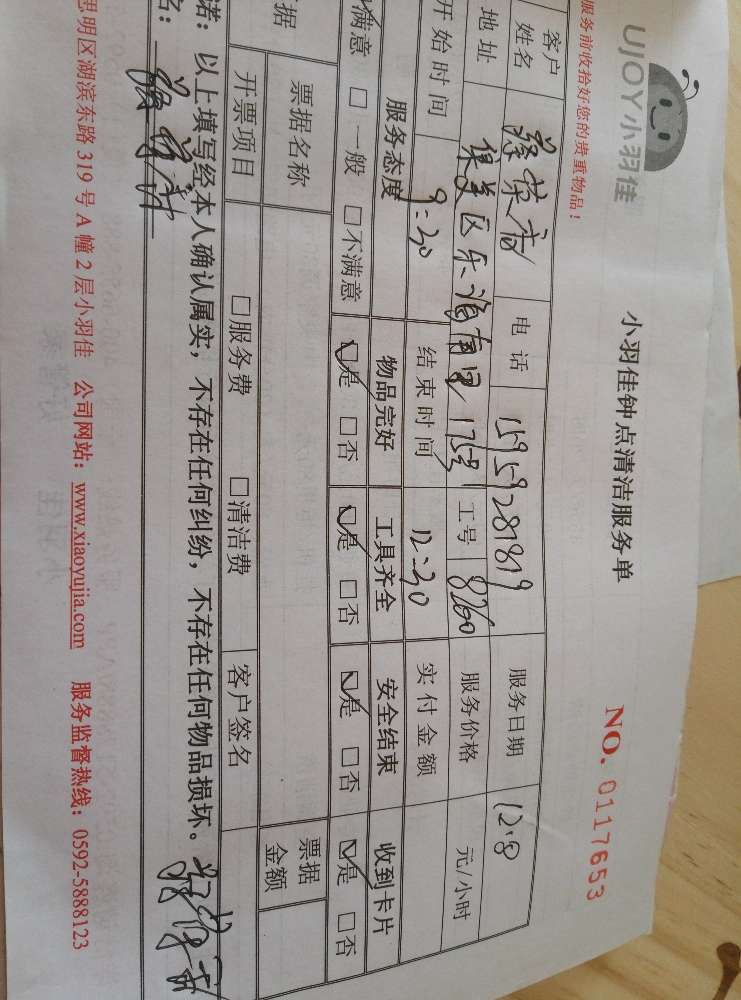 UJOY小羽佳
小羽佳钟点清洁服务单
NO. 0117653
服务前收拾好您的贵重物品!
客户姓名 荣 电话 15959281819 服务日期 12.8
地址 美区乐海南里175号 工号 8260 服务价格 元/小时
开始时间 9:30 结束时间 12:30 实付金额
服务态度 物品完好 工具齐全 安全结束 收到卡片
满意 □一般 □不满意 ☑是 □否 ☑是 □否 ☑是 □否 ☑是 □否
据 票据名称 票据金额
开票项目 □服务费 □清洁费 客户签名
诺:以上填写经本人确认属实,不存在任何纠纷,不存在任何物品损坏。
名:
思明区湖滨东路319号A幢2层小羽佳 公司网站:www.xiaoyujia.com 服务监督热线:0592-5888123